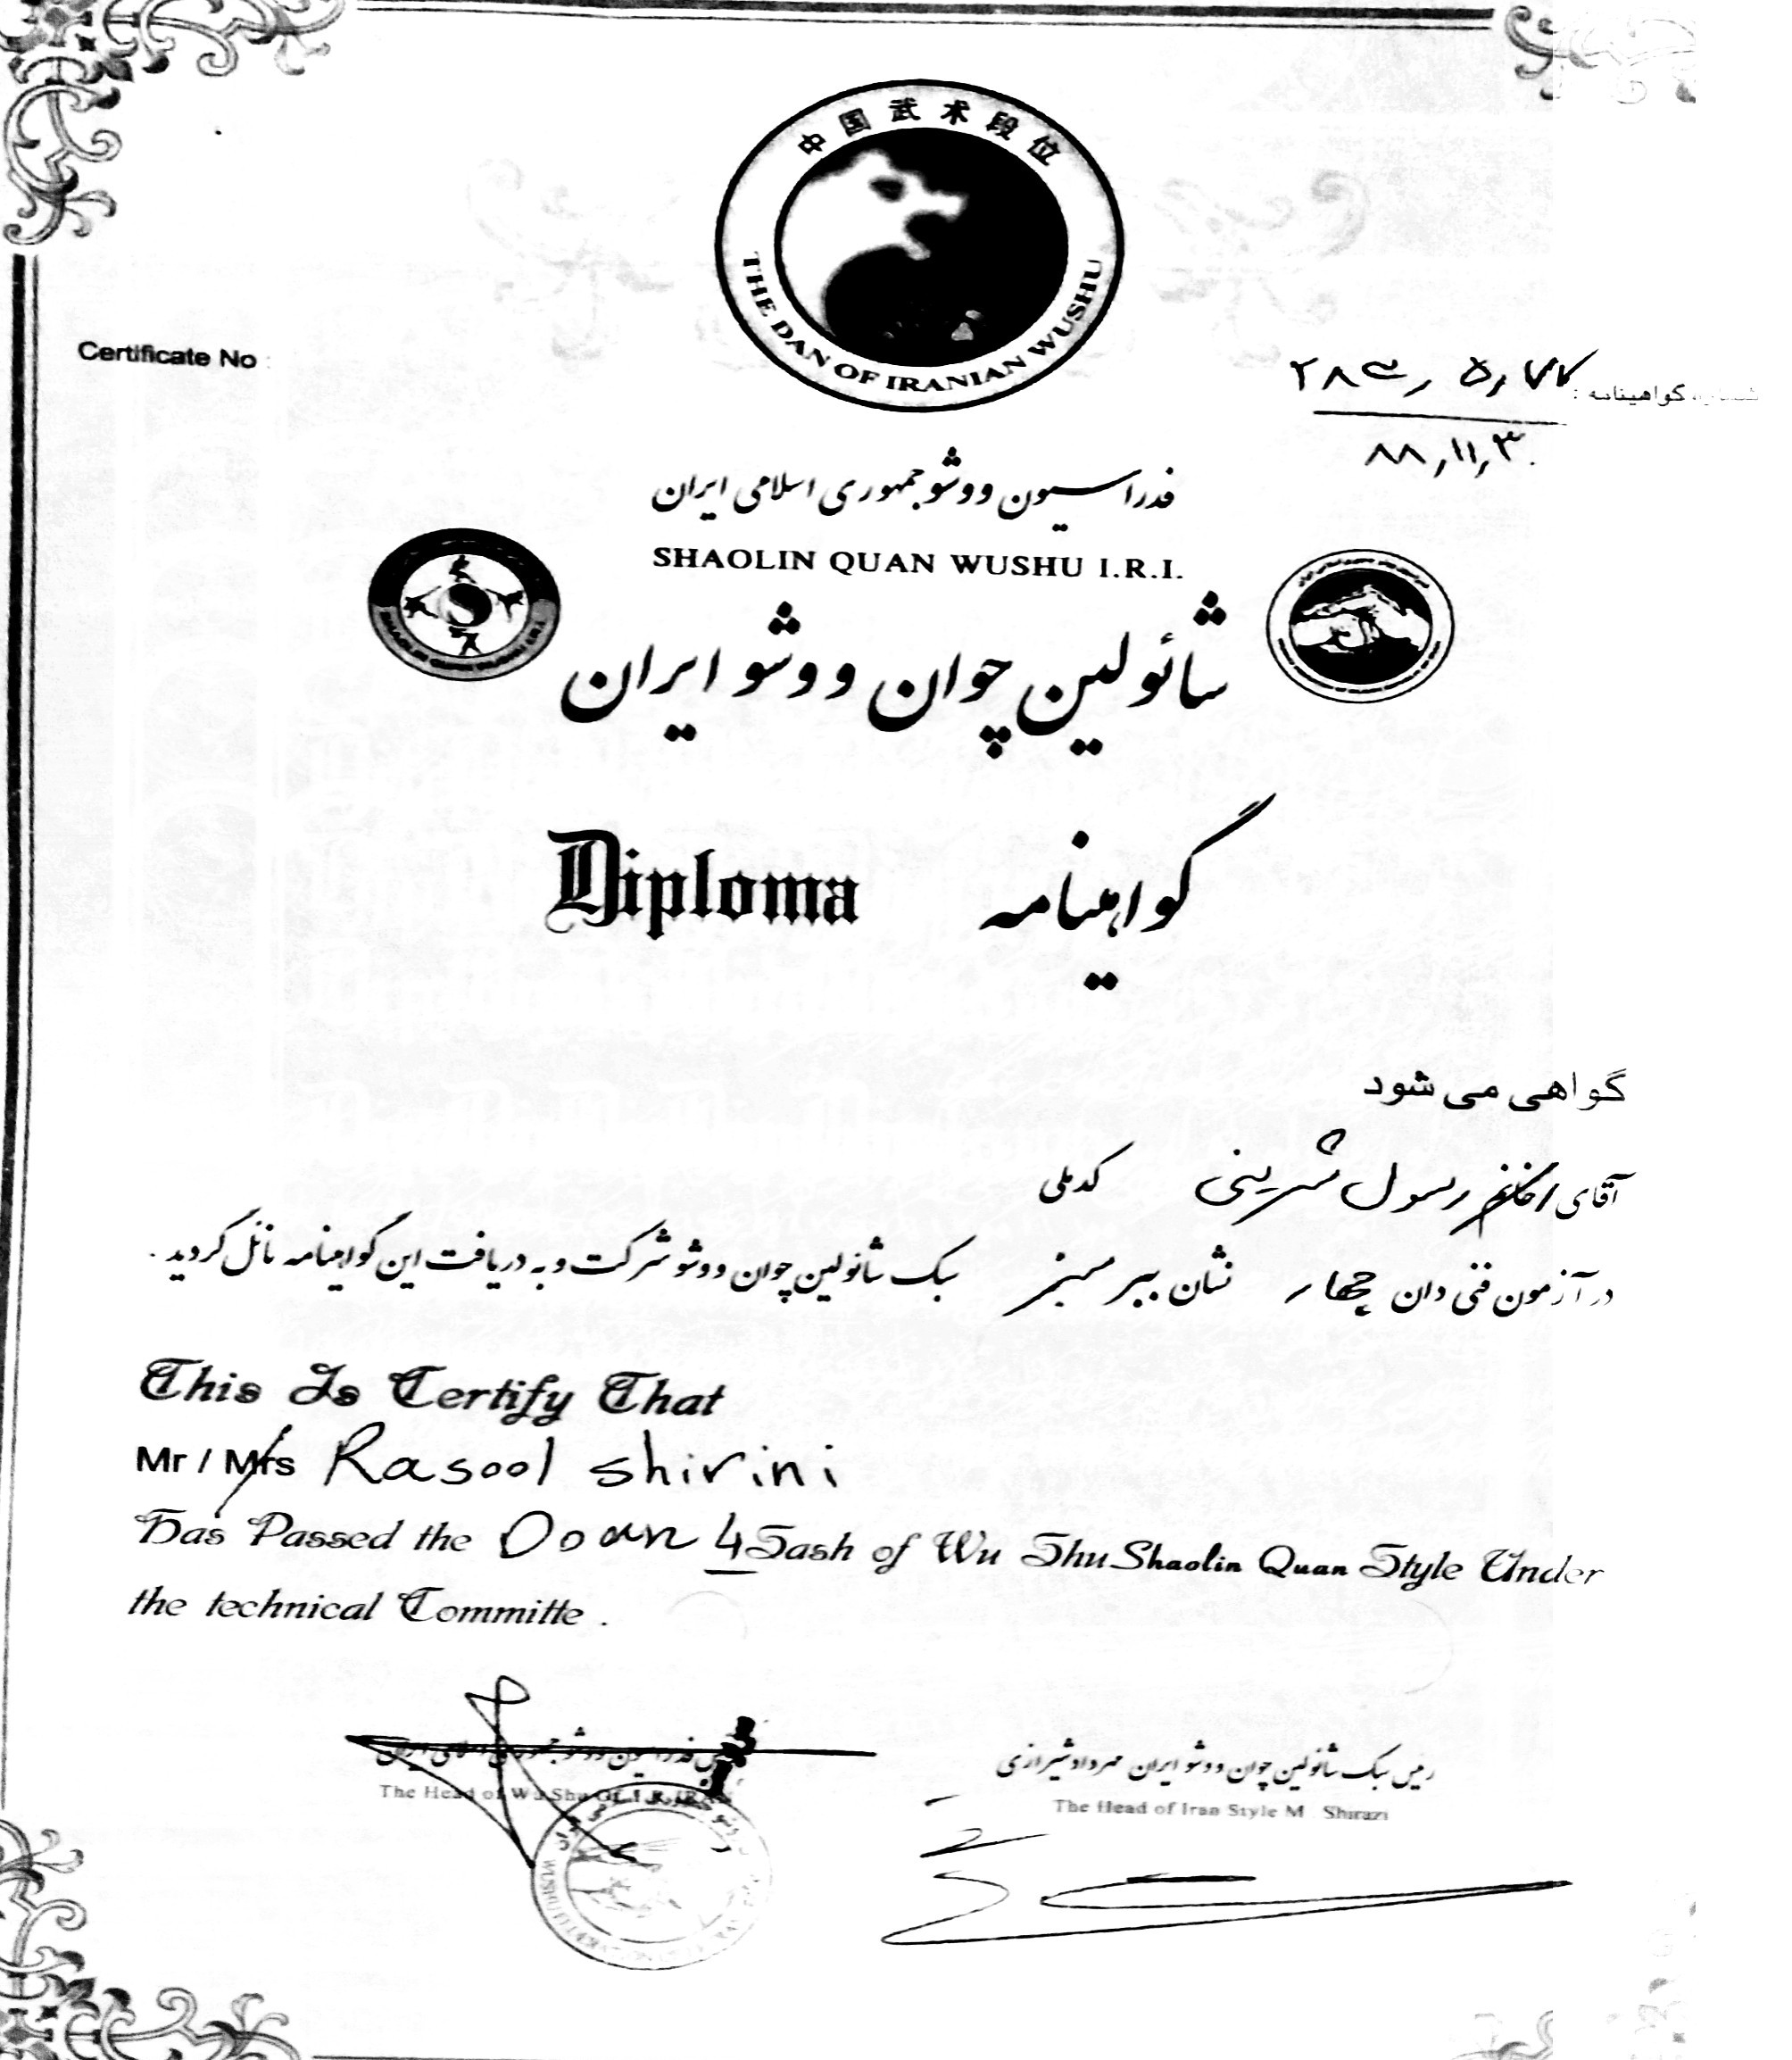 中国武术段位
THE DAN OF IRANIAN WUSHU
Certificate No :
شماره گواهینامه :
۸۸,۱۱,۳۰
فدراسیون ووشو جمهوری اسلامی ایران
SHAOLIN QUAN WUSHU I.R.I.
شائولین چوان ووشو ایران
Diploma گواهینامه
گواهی می شود
آقای / خانم رسول شیرینی کد ملی
در آزمون فنی دان چهار نشان ببر سبز سبک شائولین چوان ووشو شرکت و به دریافت این گواهینامه نائل گردید .
This Is Certify That
Mr / Mrs Rasool shirini
Has Passed the Doan 4 Sash of Wu Shu Shaolin Quan Style Under
the technical Committe .
رئیس فدراسیون ووشو جمهوری اسلامی ایران
The Head of Wu Shu Of I.R.IRAN
رئیس سبک شائولین چوان ووشو ایران مهرداد شیرازی
The Head of Iran Style M Shirazi